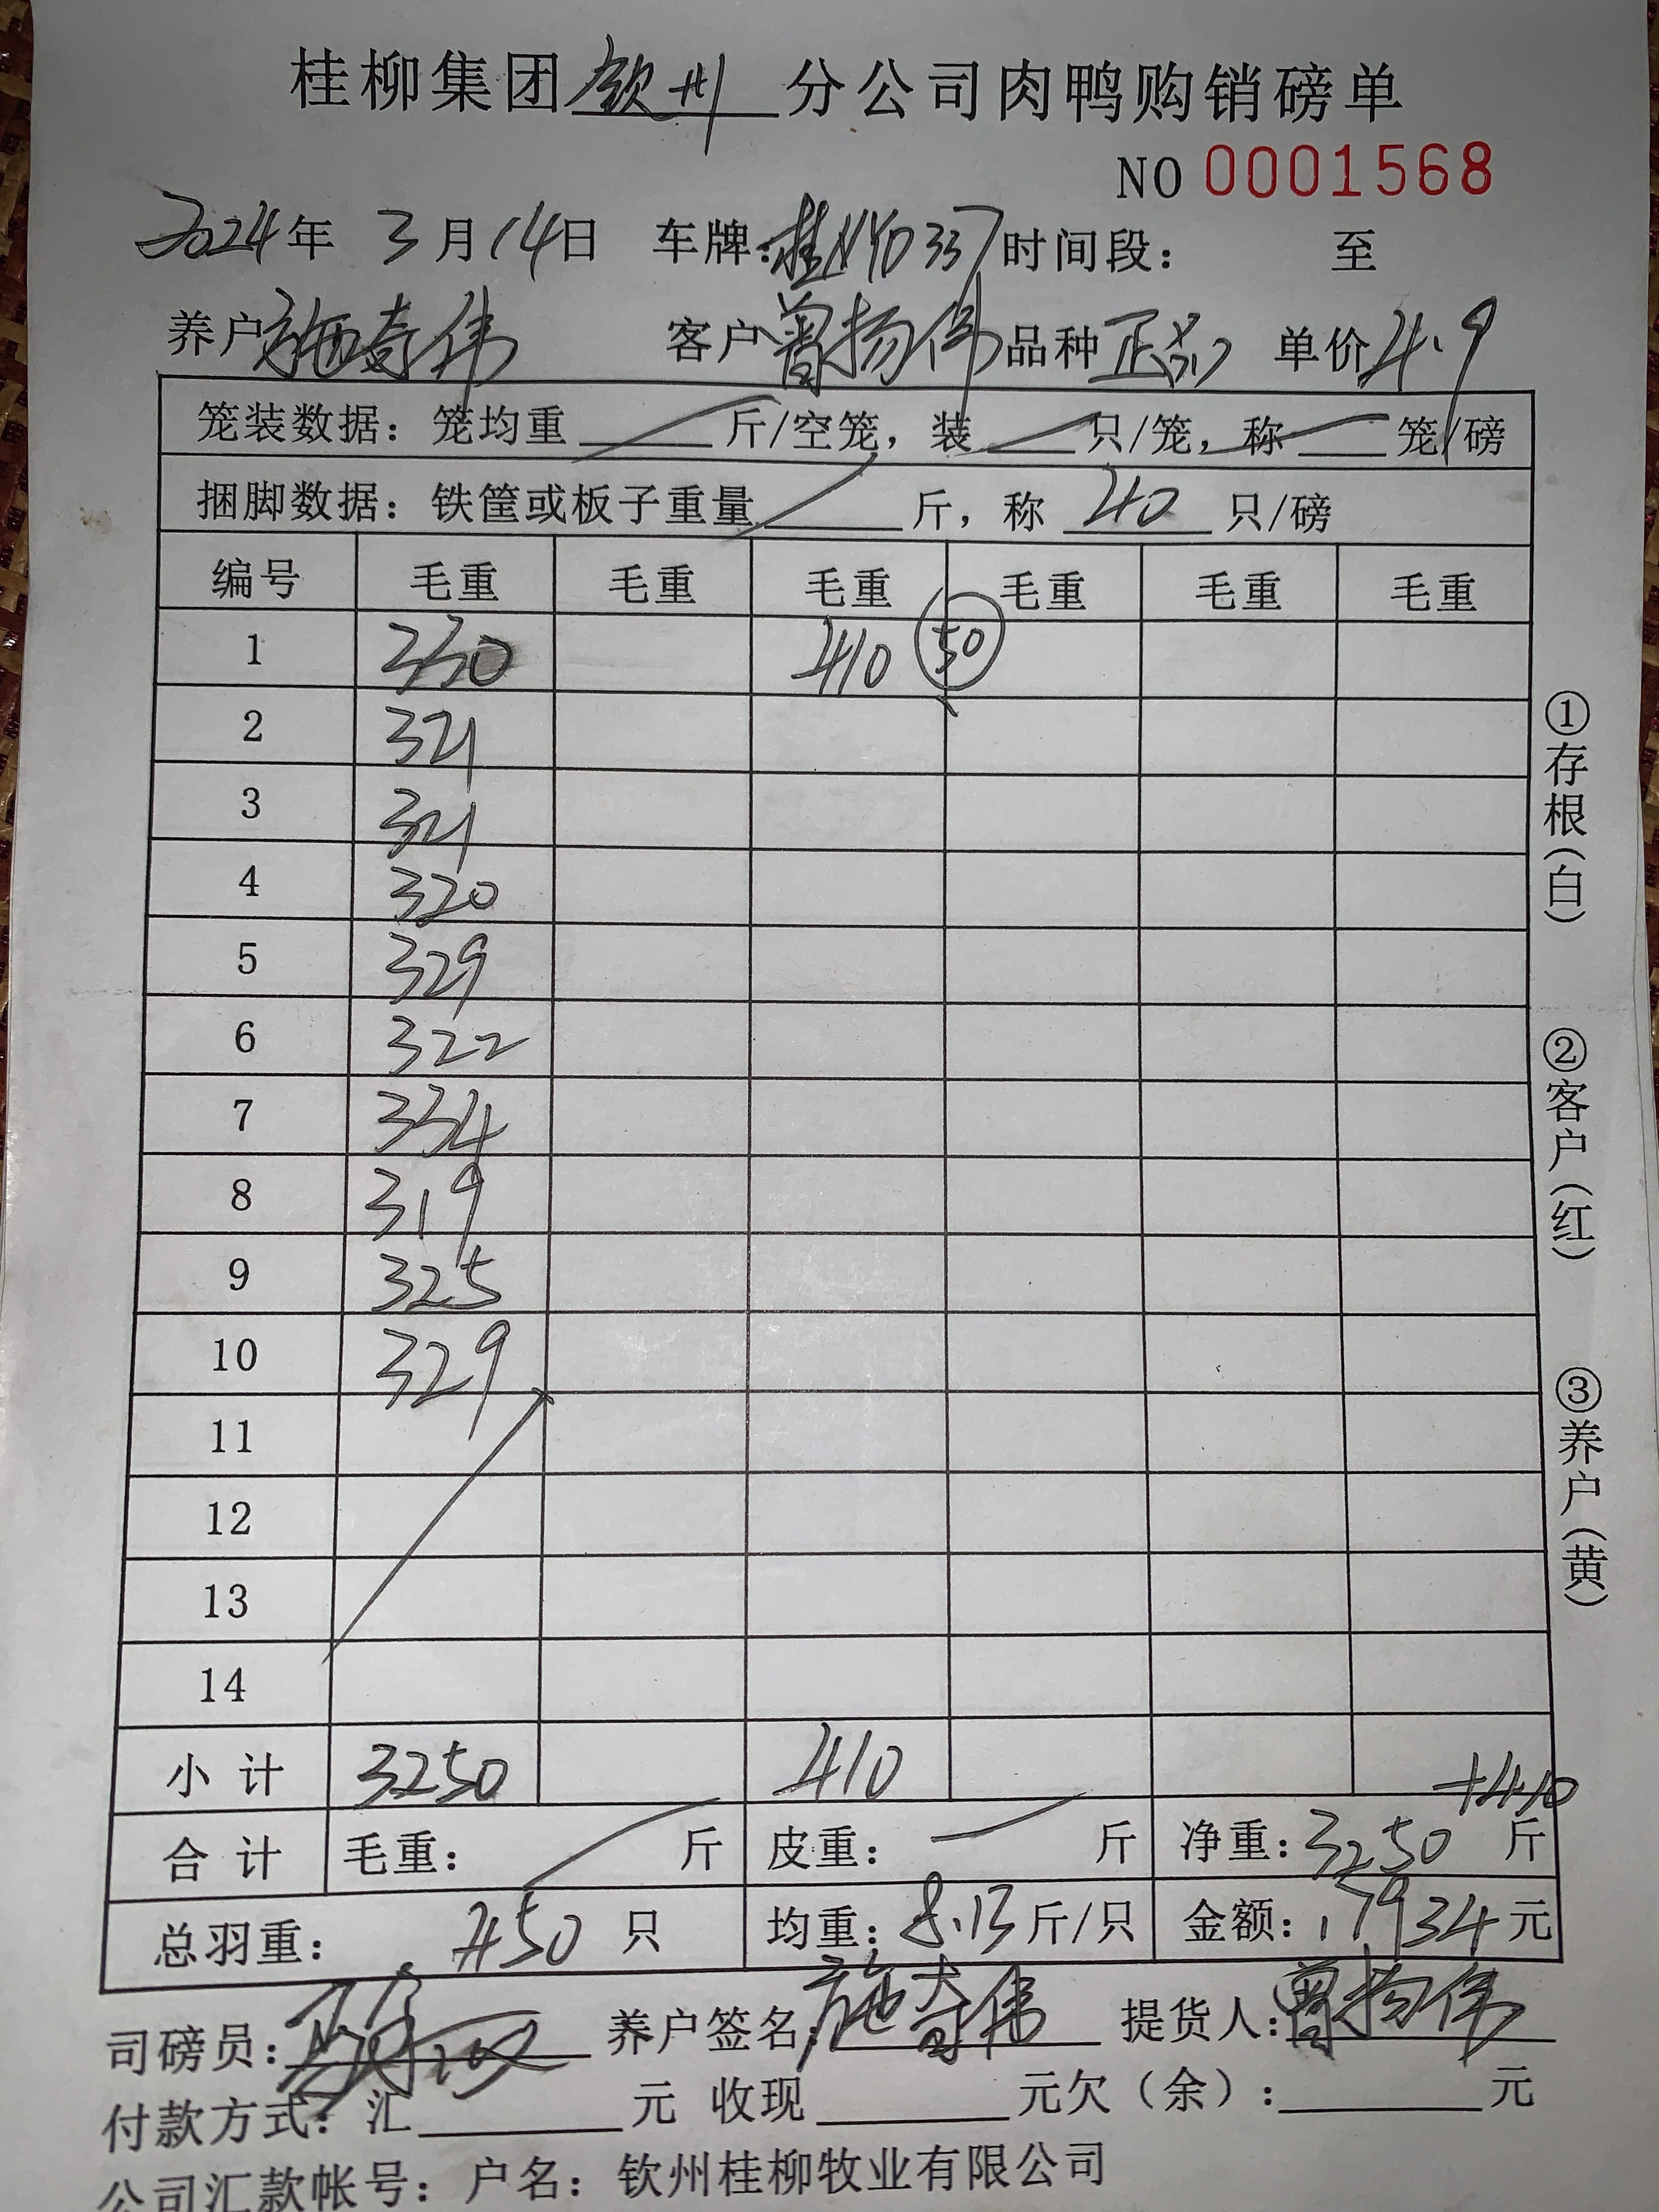 桂柳集团钦州分公司肉鸭购销磅单
NO 0001568
2024年 3月14日 车牌:桂NYD337 时间段: 至
养户施奇伟 客户曾扬伟 品种正品 单价4.9
笼装数据:笼均重 斤/空笼,装 只/笼,称 笼/磅
捆脚数据:铁筐或板子重量 斤,称 40 只/磅
编号 毛重 毛重 毛重 毛重 毛重 毛重
1 330 410 50
2 321
3 321
4 320
5 329
6 322
7 334
8 319
9 325
10 329
11
12
13
14
小计 3250 410
+410
合计 毛重: 斤 皮重: 斤 净重:3250 斤
总羽重: 450 只 均重:8.13斤/只 金额:17934元
司磅员: 养户签名:施奇伟 提货人:曾扬伟
付款方式:汇 元 收现 元欠(余): 元
公司汇款帐号:户名:钦州桂柳牧业有限公司
①存根(白)
②客户(红)
③养户(黄)